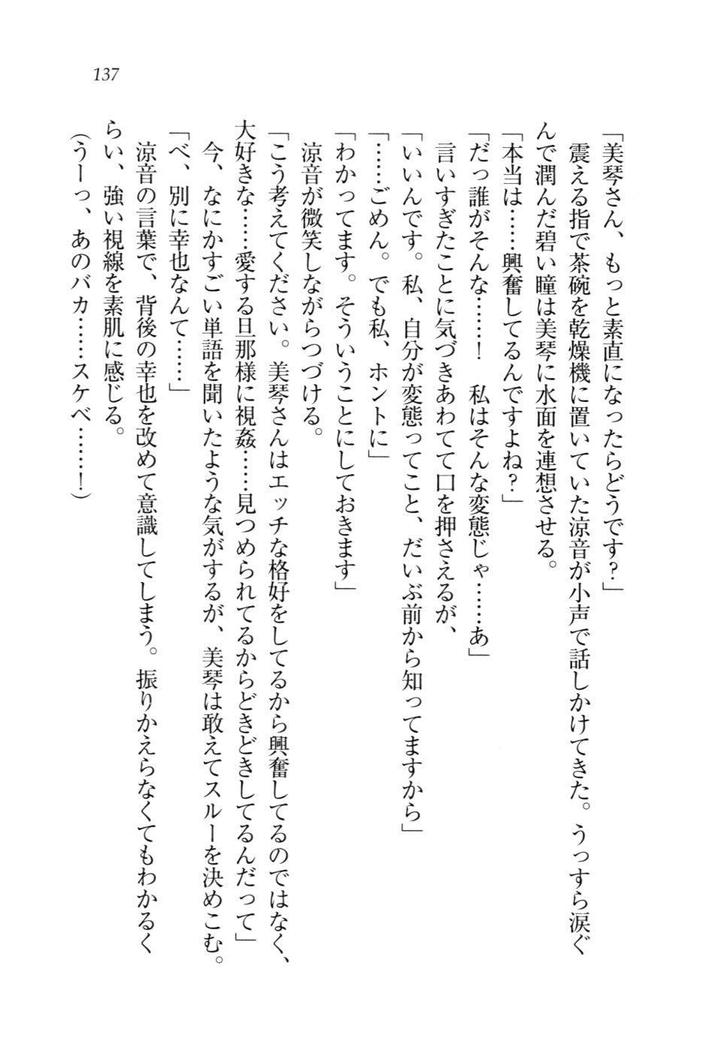 137
「美琴さん、もっと素直になったらどうです?」
震える指で茶碗を乾燥機に置いていた涼音が小声で話しかけてきた。うっすら涙ぐ
んで潤んだ碧い瞳は美琴に水面を連想させる。
「本当は……興奮してるんですよね?」
「だっ誰がそんな……! 私はそんな変態じゃ……あ」
言いすぎたことに気づきあわてて口を押さえるが、
「いいんです。私、自分が変態ってこと、だいぶ前から知ってますから」
「……ごめん。でも私、ホントに」
「わかってます。そういうことにしておきます」
涼音が微笑しながらつづける。
「こう考えてください。美琴さんはエッチな格好をしてるから興奮してるのではなく、
大好きな……愛する旦那様に視姦……見つめられてるからどきどきしてるんだって」
今、なにかすごい単語を聞いたような気がするが、美琴は敢えてスルーを決めこむ。
「べ、別に幸也なんて……」
涼音の言葉で、背後の幸也を改めて意識してしまう。振りかえらなくてもわかるく
らい、強い視線を素肌に感じる。
(うーっ、あのバカ……スケベ……!)